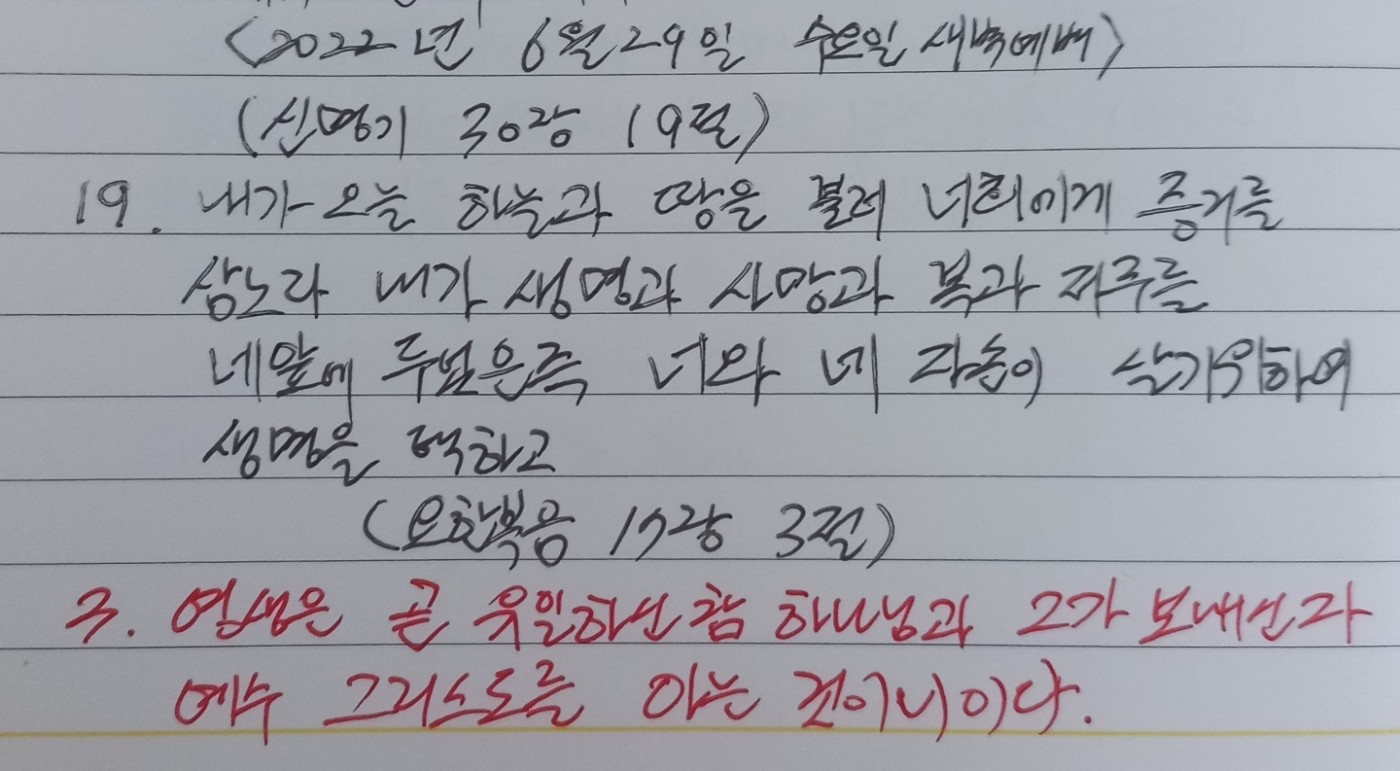 <2022년 6월 29일 수요일 새벽예배>
(신명기 30장 19절)
19. 내가 오늘 하늘과 땅을 불러 너희에게 증거를
삼노라 내가 생명과 사망과 복과 저주를
네앞에 두었은즉 너와 네 자손이 살기위하여
생명을 택하고
(요한복음 17장 3절)
3. 영생은 곧 유일하신 참 하나님과 그가 보내신 자
예수 그리스도를 아는 것이니이다.